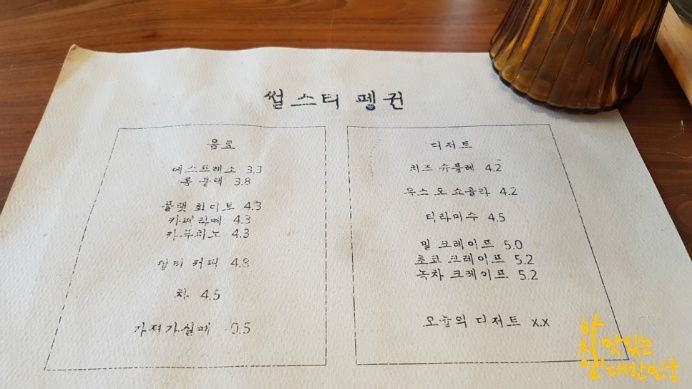 썰스티 펭귄
음료
에스프레소 3.3
롱 블랙 3.8
플랫 화이트 4.3
카페라떼 4.3
카푸치노 4.3
커피 4.8
차 4.5
가져가실때 -0.5
디저트
치즈 슈플레 4.2
무스 오 쇼콜라 4.2
티라미수 4.5
밀 크레이프 5.0
초코 크레이프 5.2
녹차 크레이프 5.2
오늘의 디저트 x.x
맛있는
대한민국